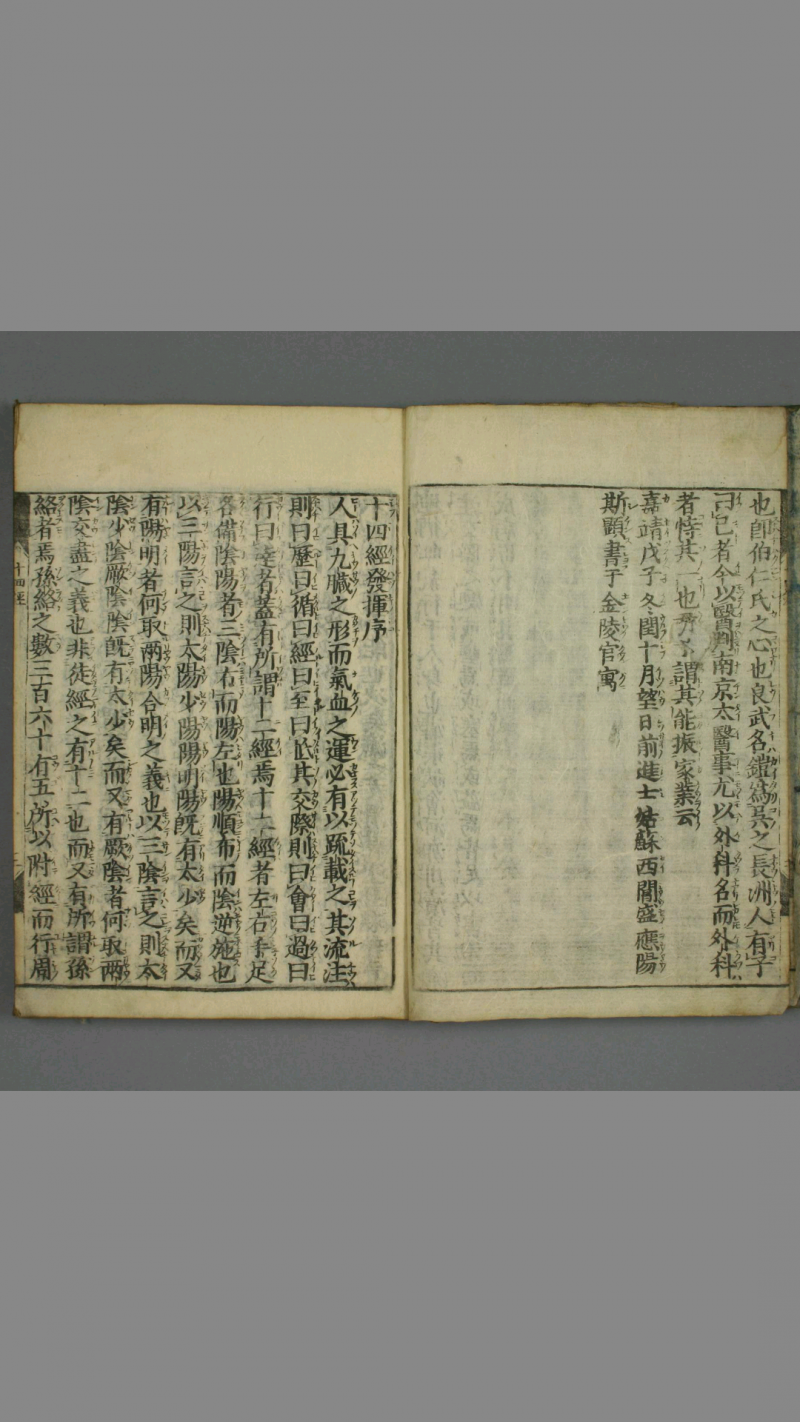 也即伯仁氏之心也良武名鎧寫吳之長洲人有子
曰已者今以醫判南京太醫事尤以外科名而外科
者特其一也 謂其能振家業云
嘉靖戊子冬閏十月望日前進士姑蘇西閶盛應陽
斯顕書于金陵官寓
十四經發揮序
人具九臟之形而氣血之運必有以疏載之其流注
則曰歷曰循曰經曰至曰抵其交際則曰會曰過曰
行曰達者蓋有所謂十二經焉十二經者左右手足
各備陰陽者三陰右而陽左也陽順布而陰逆施也
以三陽言之則太陽少陽陽明陽既有太少矣而又
有陽明者何取兩陽合明之義也以三陰言之則太
陰少陰厥陰陰既有太少矣而又有厥陰者何取兩
陰交盡之義也非徒經之有十二也而又有所謂孫
絡者焉孫絡之數三百六十有五所以附經而行周
十四經